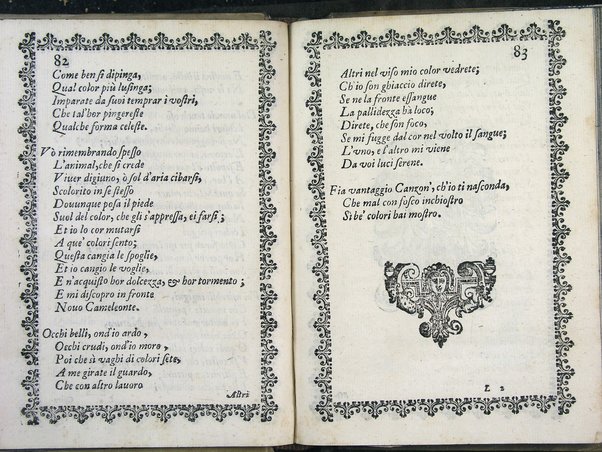 82
Come ben si dipinga,
Qual color più lusinga;
Imparate da suoi temprar i vostri,
Che tal'hor pingereste
Qualche forma celeste.
Vò rimembrando spesso
L'animal, che si crede
Viuer digiuno, ò sol d'aria cibarsi,
Scolorito in se stesso
Douunque posa il piede
Suol del color, che gli s'appressa, ei farsi;
Et io lo cor mutarsi
A que' colori sento;
Questa cangia le spoglie,
Et io cangio le voglie,
E n'acquisto hor dolcezza, & hor tormento;
E mi discopro in fronte
Nouo Cameleonte.
Occhi belli, ond'io ardo,
Occhi crudi, ond'io moro,
Poi che sì vaghi di colori sete,
A me girate il guardo,
Che con altro lauoro
Altri
83
Altri nel viso mio color vedrete;
Ch'io son ghiaccio direte,
Se ne la fronte essangue
La pallidezza hà loco;
Direte, che son foco,
Se mi fugge dal cor nel volto il sangue;
L'vno, e l'altro mi viene
Da voi luci serene.
Fia vantaggio Canzon', ch'io ti nasconda,
Che mal con fosco inchiostro
Sì be' colori hai mostro.
E 2